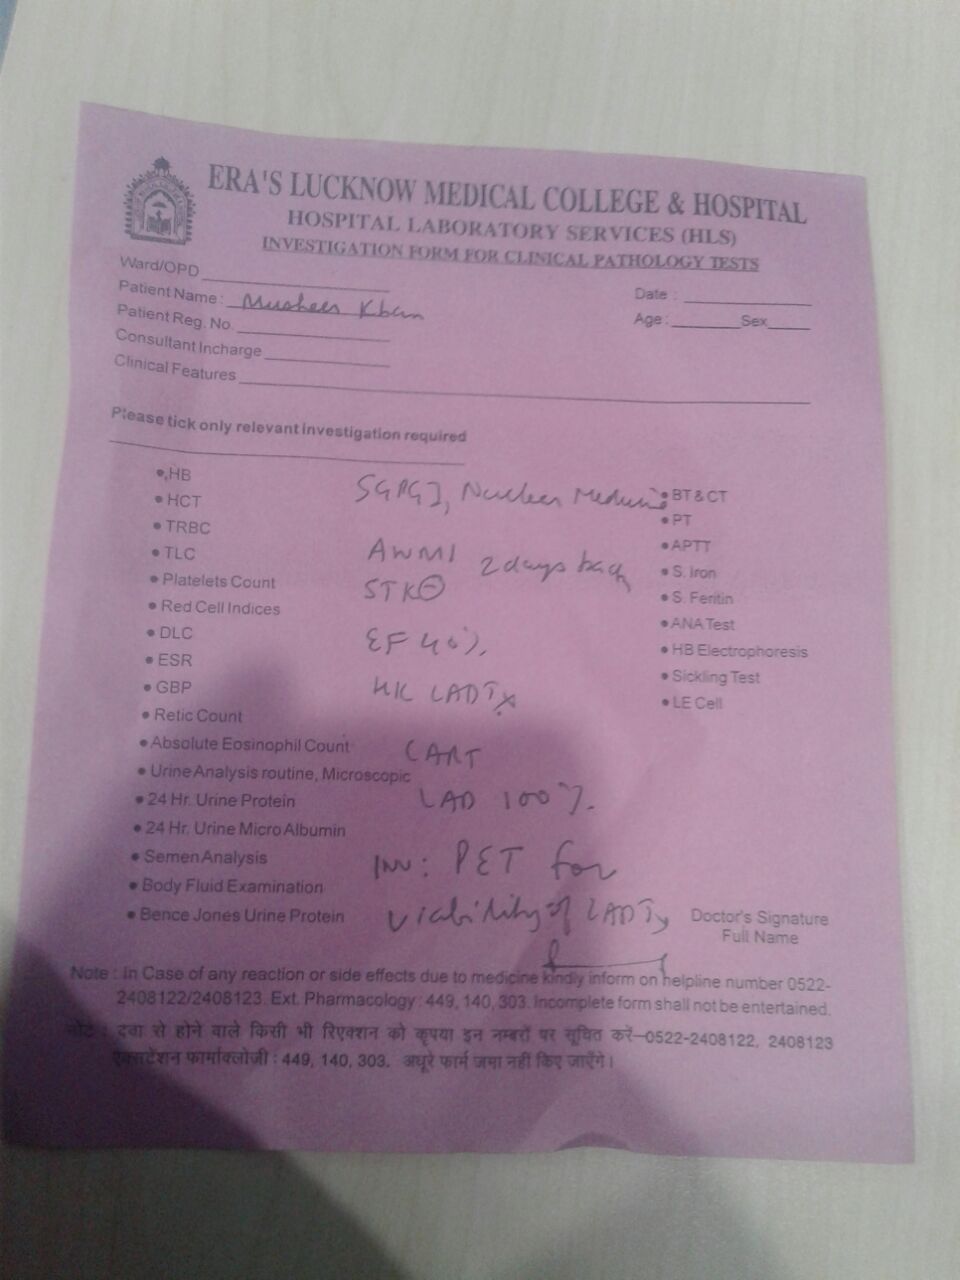 ERA'S LUCKNOW MEDICAL COLLEGE & HOSPITAL
HOSPITAL LABORATORY SERVICES (HLS)
INVESTIGATION FORM FOR CLINICAL PATHOLOGY TESTS
Ward/OPD
Date :
Patient Name : Khan
Age : Sex
Patient Reg. No.
Consultant Incharge
Clinical Features
Please tick only relevant investigation required
• HB
• HCT
• TRBC
• TLC
• Platelets Count
• Red Cell Indices
• DLC
• ESR
• GBP
• Retic Count
• Absolute Eosinophil Count
• Urine Analysis routine, Microscopic
• 24 Hr. Urine Protein
• 24 Hr. Urine Micro Albumin
• Semen Analysis
• Body Fluid Examination
• Bence Jones Urine Protein
SGPGI, Nuclear Medicine
AWMI 2 days back
STK⊖
EF 40%
LAD Tx
CART
LAD 100%
Inv: PET for
viability of LAD Ty
• BT & CT
• PT
• APTT
• S. Iron
• S. Feritin
• ANA Test
• HB Electrophoresis
• Sickling Test
• LE Cell
Doctor's Signature
Full Name
Note : In Case of any reaction or side effects due to medicine kindly inform on helpline number 0522-
2408122/2408123. Ext. Pharmacology : 449, 140, 303. Incomplete form shall not be entertained.
नोट : दवा से होने वाले किसी भी रिएक्शन को कृपया इन नम्बरों पर सूचित करें–0522-2408122, 2408123
एक्सटेंशन फार्माक्लोजी : 449, 140, 303. अधूरे फार्म जमा नहीं किए जाएँगे।